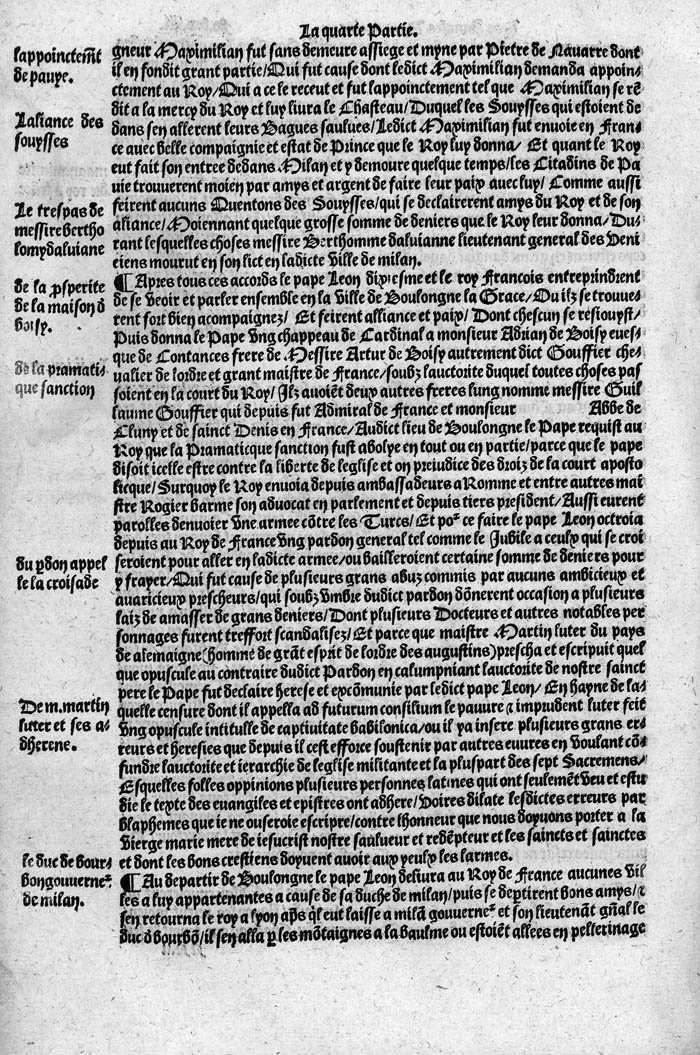 La quarte Partie.
lappoinctemẽt
de pauye.
Laliance des
souysses
Le trespas de
messire bertho
lomydaluiane
de la ꝓsperite
de la maison d̃
boisy.
de la pramati-
que sanction
du ꝑdon appel
le la croisade
De m. martin
luter et ses a-
dherens.
le duc de bour-
bon gouuerneʳ
de milan.
gneur Maximilian fut sans demeure assiege et myne par Pietre de Nauarre dont
il en fondit grant partie/Qui fut cause dont ledict Maximilian demanda appoin-
ctement au Roy/Qui a ce le receut et fut lappoinctement tel que Maximilian se rẽ
dit a la mercy du Roy et luy liura le Chasteau/Duquel les Souysses qui estoient de
dans sen allerent leurs Bagues saulues/Ledict Maximilian fut enuoie en Fran-
ce auec belle compaignie et estat de Prince que le Roy luy donna/ Et quant le Roy
eut fait son entree dedans Milan et y demoure quelque temps/les Citadins de Pa
uie trouuerent moien par amys et argent de faire leur paix auec luy/ Comme aussi
feirent aucuns Quentons des Souysses/qui se declairerent amys du Roy et de son
aliance/Moiennant quelque grosse somme de deniers que le Roy leur donna/Du-
rant lesquelles choses messire Berthomme daluianne lieutenant general des Veni
ciens mourut en son lict en ladicte Ville de milan.
¶Apres tous ces accords le pape Leon dixiesme et le roy Francois entreprindrent
de se veoir et parler ensemble en la Ville de Boulongne la Grace/Ou ilz se trouue-
rent fort bien acompaignez/ Et feirent alliance et paix/ Dont chescun se resiouyst/
Puis donna le Pape vng chappeau de Cardinal a monsieur Adrian de Boisy eues-
que de Contances frere de Messire Artur de Boisy autrement dict Gouffier che-
ualier de lordre et grant maistre de France/soubz lauctorite duquel toutes choses pas
soient en la court du Roy/ Ilz auoiẽt deux autres freres lung nomme messire Guil
laume Gouffier qui depuis fut Admiral de France et monsieur Abbe de
Cluny et de sainct Denis en France/Audict lieu de Boulongne le Pape requist au
Roy que la Pramaticque sanction fust abolye en tout ou en partie/parce que le pape
disoit icelle estre contre la liberte de leglise et on preiudice des droiz de la court aposto
licque/Surquoy le Roy enuoia depuis ambassadeurs a Romme et entre autres mai
stre Rogier barme son aduocat en parlement et depuis tiers president/Aussi eurent
parolles denuoier vne armee cõtre les Turcs/Et poʳ ce faire le pape Leon octroia
depuis au Roy de France vng pardon general tel comme le Jubile a ceulx qui se croi
seroient pour aller en ladicte armee/ou bailleroient certaine somme de deniers pour
y frayer/Qui fut cause de plusieurs grans abuz commis par aucuns ambicieux et
auaricieux prescheurs/qui soubz vmbre dudict pardon dõnerent occasion a plusieurs
laiz de amasser de grans deniers/Dont plusieurs Docteurs et autres notables per
sonnages furent tresfort scandalisez/Et parce que maistre Martin luter du pays
de alemaigne(homme de grãt esprit de lordre des augustins)prescha et escripuit quel
que opuscule au contraire dudict Pardon en calumpniant lauctorite de nostre sainct
pere le Pape fut declaire herese et excõmunie par ledict pape Leon/ En hayne de la-
quelle censure dont il appella ad futurum consilium le pauure ⁊ impudent luter feit
vng opuscule intitulle de captiuitate babilonica/ou il ya insere plusieurs grans er-
reurs et heresies que depuis il cest efforce soustenir par autres euures en voulant cõ-
fundre lauctorite et ierarchie de leglise militante et la pluspart des sept Sacremens/
Esquelles folles oppinions plusieurs personnes latines qui ont seulemẽt veu et estu
die le texte des euangiles et epistres ont adhere/Voires dilate lesdictes erreurs par
blaphemes que ie ne ouseroie escripre/contre lhonneur que nous doyuons porter a la
vierge marie mere de iesucrist nostre saulueur et redẽpteur et les saincts et sainctes
et dont les bons crestiens doyuent auoir aux yeulx les larmes.
¶Au departir de Boulongne le pape Leon deliura au Roy de France aucunes vil
les a luy appartenantes a cause de sa duche de milan/puis se deꝑtirent bons amys/⁊
sen retourna le roy a lyon apꝭs ql̃ eut laisse a milã gouuerneʳ et son lieutenãt gñal le
duc d̃ bourbõ/il sen alla ꝑ les mõtaignes a la baulme ou estoiẽt allees en pellerinage